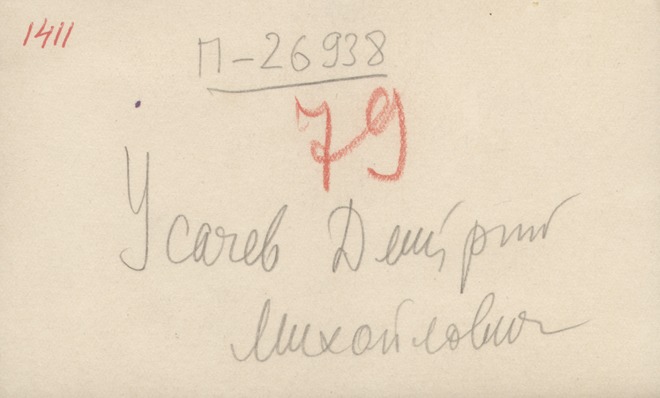 1411
П-26938
79
Усачев Дмитрий
Михайлович